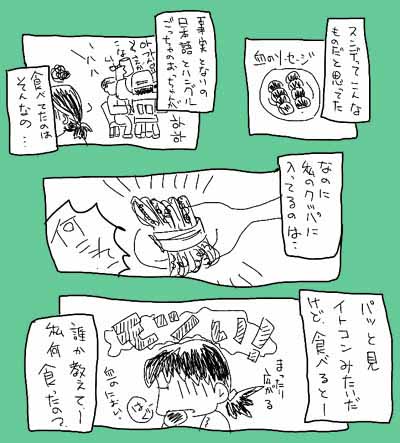 スンデってこんな
ものだと思ってた
血のソーセージ
事実となりの
日本語とハングル
ごっちゃのおっちゃんが
ハハ
하하
食べてたのは
そんなの…
なのに
私のクッパに
入ってるのは…
パッと見
イトコンみたいだ
けど、食べるとー
まったり
広がる
血のにおい。
誰か教えてー
私何食たの?